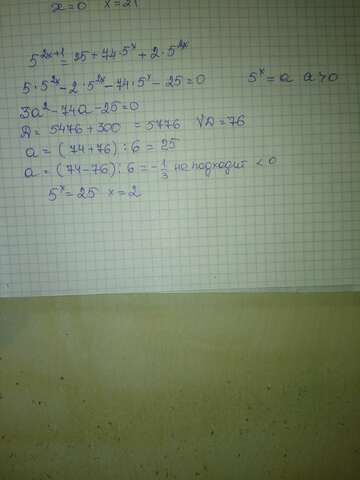 x=0 x=21
5^{2x+1}=25+74·5^x+2·5^{2x}
5·5^{2x}-2·5^{2x}-74·5^x-25=0 5^x=a a>0
3a²-74a-25=0
D=5476+300 =5776 √D=76
a=(74+76):6=25
a=(74-76):6=-1/3 не подходит <0
5^x=25 x=2